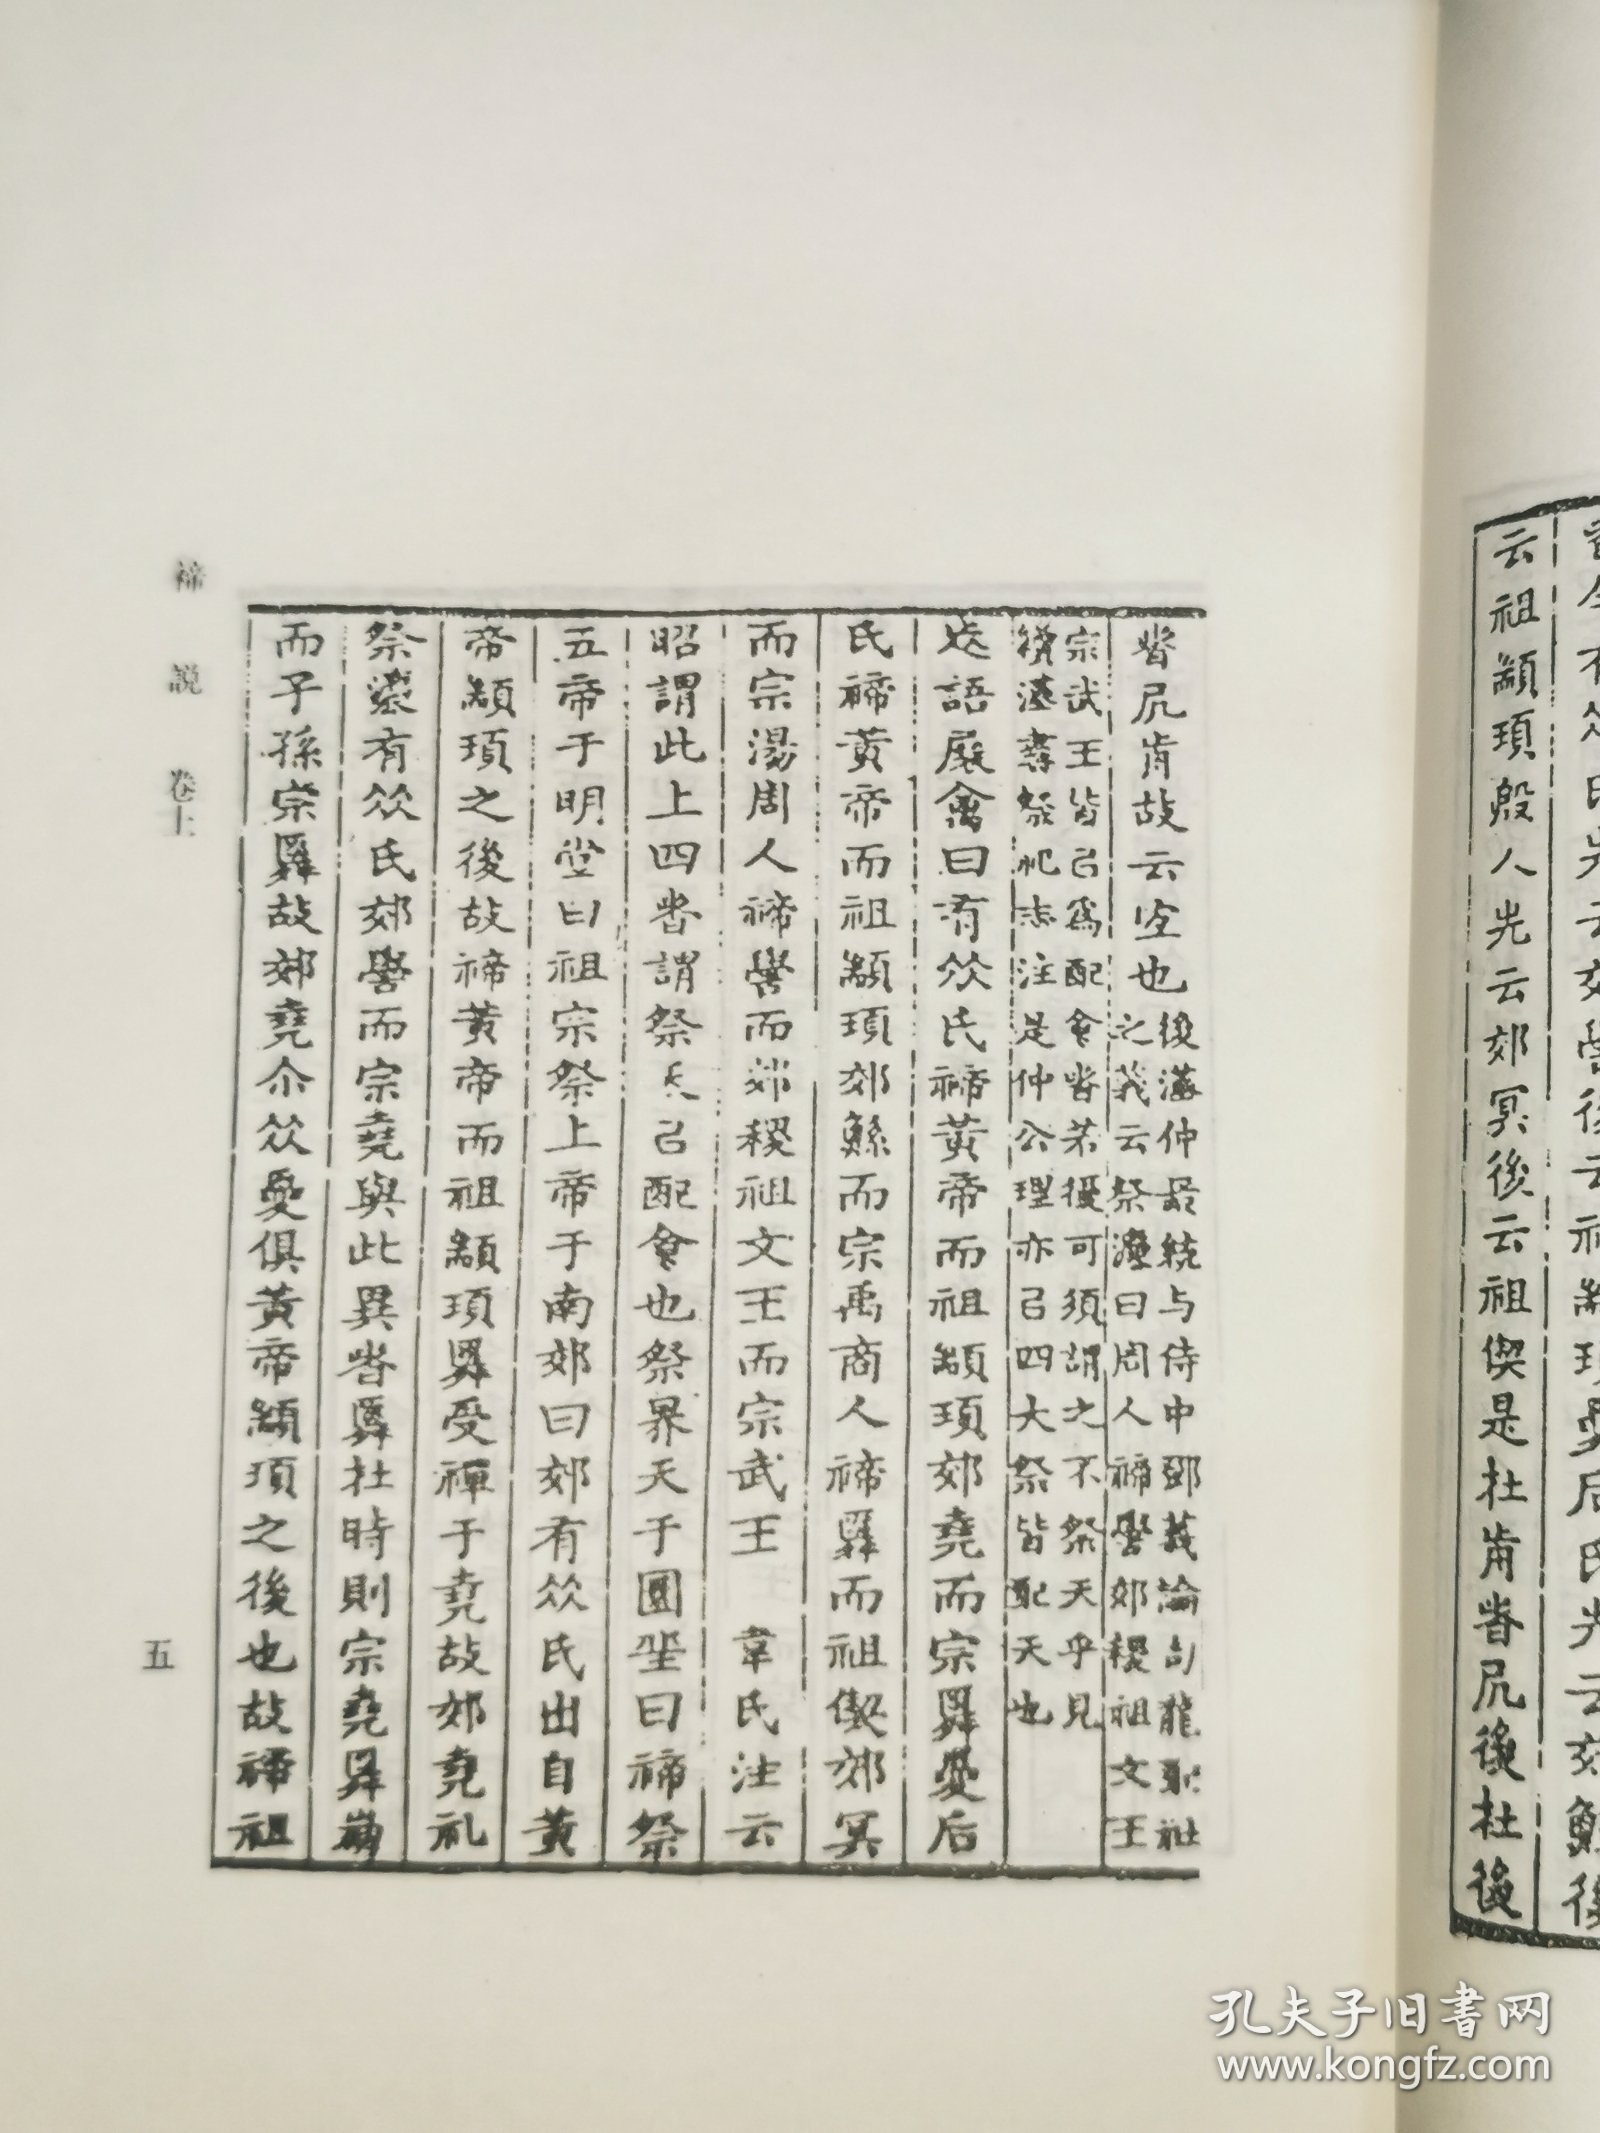 云祖顓頊殷人先云郊冥後云祖偰是杜前者凥後杜後
者凥前故云宜也
後漢仲
與侍中鄧義論
之義云祭灋曰周人禘嚳郊稷祖文王
宗武王皆㠯爲配食者若復可須謂之不祭天乎見
續漢書祭祀志注是仲公理亦㠯四大祭皆配天也
語展禽曰有众氏禘黃帝而祖顓頊郊堯而宗舜夏后
氏禘黃帝而祖顓頊郊鯀而宗禹商人禘舜而祖偰郊冥
而宗湯周人禘嚳而郊稷祖文王而宗武王 韋氏注云
昭謂此上四者謂祭天㠯配食也祭昊天于圜丘曰禘祭
五帝于明堂曰祖宗祭上帝于南郊曰郊有众氏出自黃
帝顓頊之後故禘黃帝而祖顓頊舜受禪于堯故郊堯礼
祭灋有众氏郊嚳而宗堯與此異者舜杜時則宗堯舜崩
而子孫宗舜故郊堯尒众夏俱黃帝顓頊之後也故禘祖
禘說 卷上
五
孔夫子旧书网
www.kongfz.com